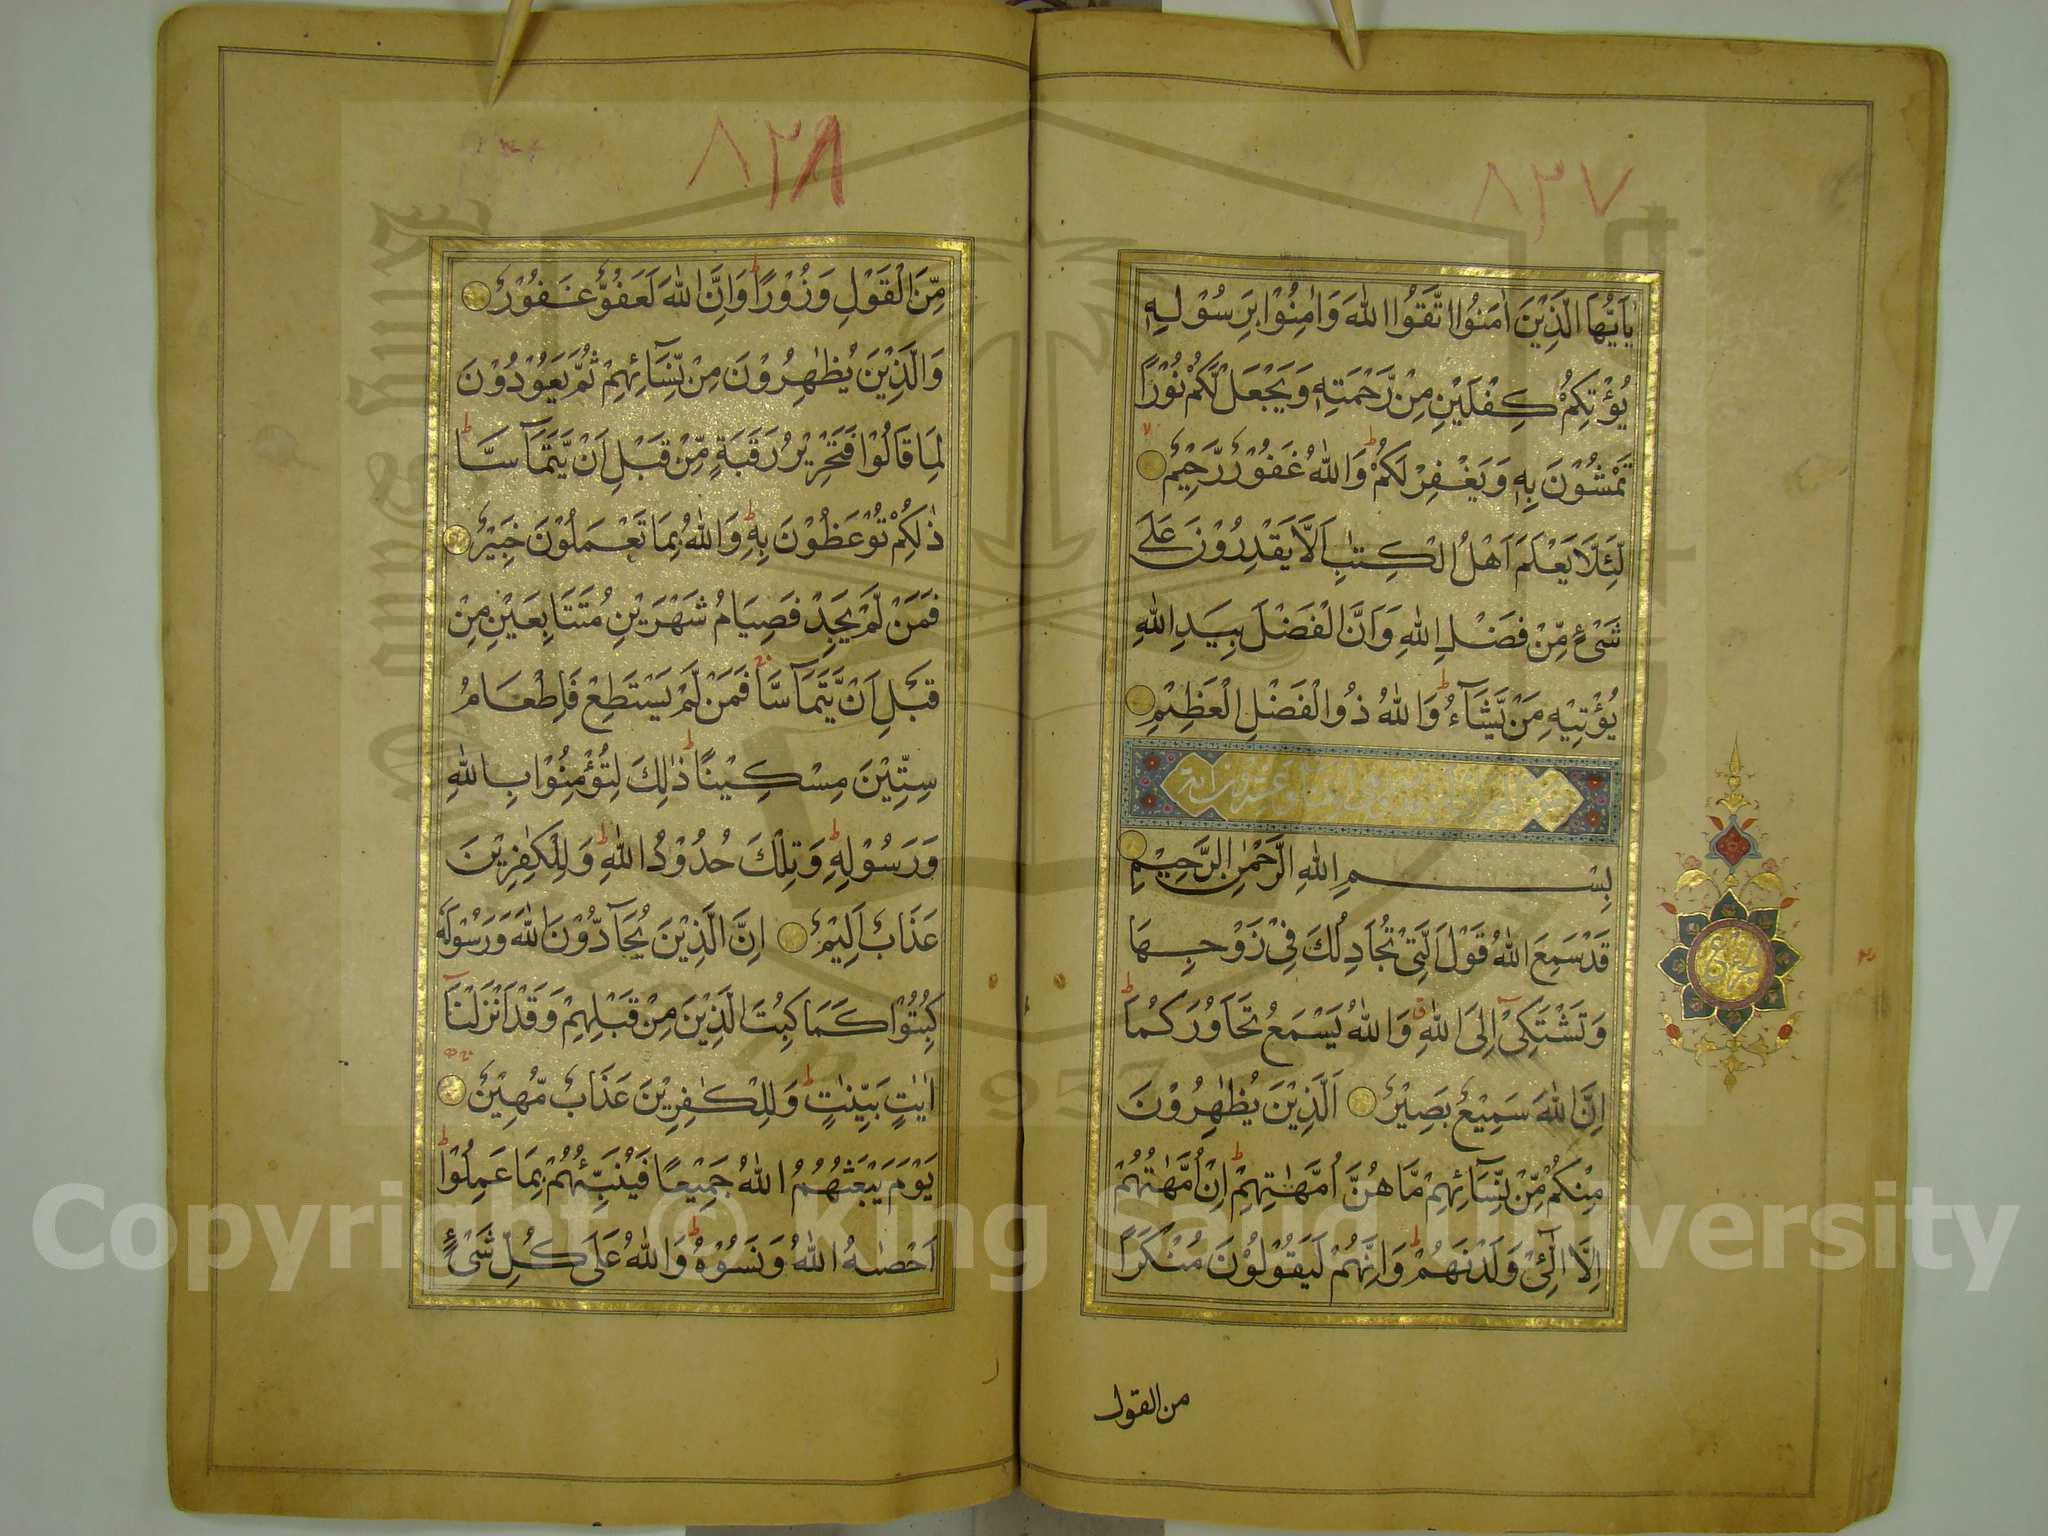 ٨٣٧
يٰاَيُّهَا الَّذِيْنَ اٰمَنُوا اتَّقُوا اللّٰهَ وَاٰمِنُوْا بِرَسُوْلِهٖ
يُؤْتِكُمْ كِفْلَيْنِ مِنْ رَّحْمَتِهٖ وَيَجْعَلْ لَّكُمْ نُوْرًا
تَمْشُوْنَ بِهٖ وَيَغْفِرْ لَكُمْ ط وَاللّٰهُ غَفُوْرٌ رَّحِيْمٌ
لِّئَلَّا يَعْلَمَ اَهْلُ الْكِتٰبِ اَلَّا يَقْدِرُوْنَ عَلٰى
شَىْءٍ مِّنْ فَضْلِ اللّٰهِ وَاَنَّ الْفَضْلَ بِيَدِ اللّٰهِ
يُؤْتِيْهِ مَنْ يَّشَآءُ ط وَاللّٰهُ ذُو الْفَضْلِ الْعَظِيْمِ
بِسْمِ اللّٰهِ الرَّحْمٰنِ الرَّحِيْمِ
قَدْ سَمِعَ اللّٰهُ قَوْلَ الَّتِىْ تُجَادِلُكَ فِىْ زَوْجِهَا
وَتَشْتَكِىْٓ اِلَى اللّٰهِ ق وَاللّٰهُ يَسْمَعُ تَحَاوُرَكُمَا ط
اِنَّ اللّٰهَ سَمِيْعٌ بَصِيْرٌ اَلَّذِيْنَ يُظٰهِرُوْنَ
مِنْكُمْ مِّنْ نِّسَآئِهِمْ مَّا هُنَّ اُمَّهٰتِهِمْ ط اِنْ اُمَّهٰتُهُمْ
اِلَّا الّٰٓئِىْ وَلَدْنَهُمْ ط وَاِنَّهُمْ لَيَقُوْلُوْنَ مُنْكَرًا
من القول
٨٣٨
مِّنَ الْقَوْلِ وَزُوْرًا ط وَاِنَّ اللّٰهَ لَعَفُوٌّ غَفُوْرٌ
وَالَّذِيْنَ يُظٰهِرُوْنَ مِنْ نِّسَآئِهِمْ ثُمَّ يَعُوْدُوْنَ
لِمَا قَالُوْا فَتَحْرِيْرُ رَقَبَةٍ مِّنْ قَبْلِ اَنْ يَّتَمَآسَّا ط
ذٰلِكُمْ تُوْعَظُوْنَ بِهٖ ط وَاللّٰهُ بِمَا تَعْمَلُوْنَ خَبِيْرٌ
فَمَنْ لَّمْ يَجِدْ فَصِيَامُ شَهْرَيْنِ مُتَتَابِعَيْنِ مِنْ
قَبْلِ اَنْ يَّتَمَآسَّا فَمَنْ لَّمْ يَسْتَطِعْ فَاِطْعَامُ
سِتِّيْنَ مِسْكِيْنًا ط ذٰلِكَ لِتُؤْمِنُوْا بِاللّٰهِ
وَرَسُوْلِهٖ ط وَتِلْكَ حُدُوْدُ اللّٰهِ ط وَلِلْكٰفِرِيْنَ
عَذَابٌ اَلِيْمٌ اِنَّ الَّذِيْنَ يُحَآدُّوْنَ اللّٰهَ وَرَسُوْلَهٗ
كُبِتُوْا كَمَا كُبِتَ الَّذِيْنَ مِنْ قَبْلِهِمْ وَقَدْ اَنْزَلْنَآ
اٰيٰتٍ بَيِّنٰتٍ ط وَلِلْكٰفِرِيْنَ عَذَابٌ مُّهِيْنٌ
يَوْمَ يَبْعَثُهُمُ اللّٰهُ جَمِيْعًا فَيُنَبِّئُهُمْ بِمَا عَمِلُوْا ط
اَحْصٰىهُ اللّٰهُ وَنَسُوْهُ ط وَاللّٰهُ عَلٰى كُلِّ شَىْءٍ
Copyright © King Saud University
1957